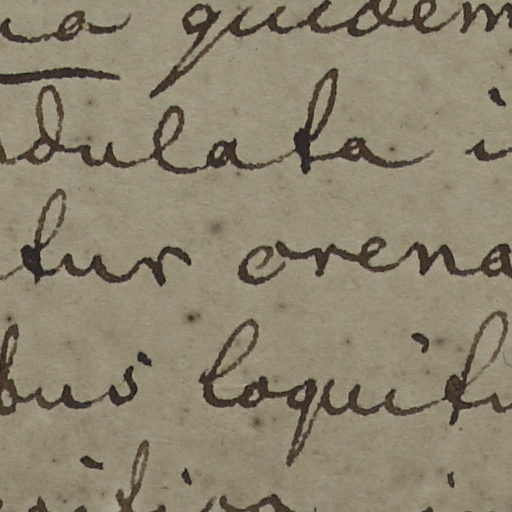 ua quidem
dulata i
tur orena
bus loquitu